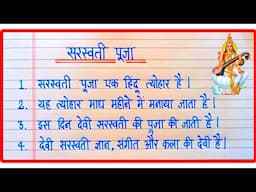 सरस्वती पूजा
1. सरस्वती पूजा एक हिंदू त्योहार है।
2. यह त्योहार माघ महीने में मनाया जाता है।
3. इस दिन देवी सरस्वती की पूजा की जाती है।
4. देवी सरस्वती ज्ञान, संगीत और कला की देवी है।